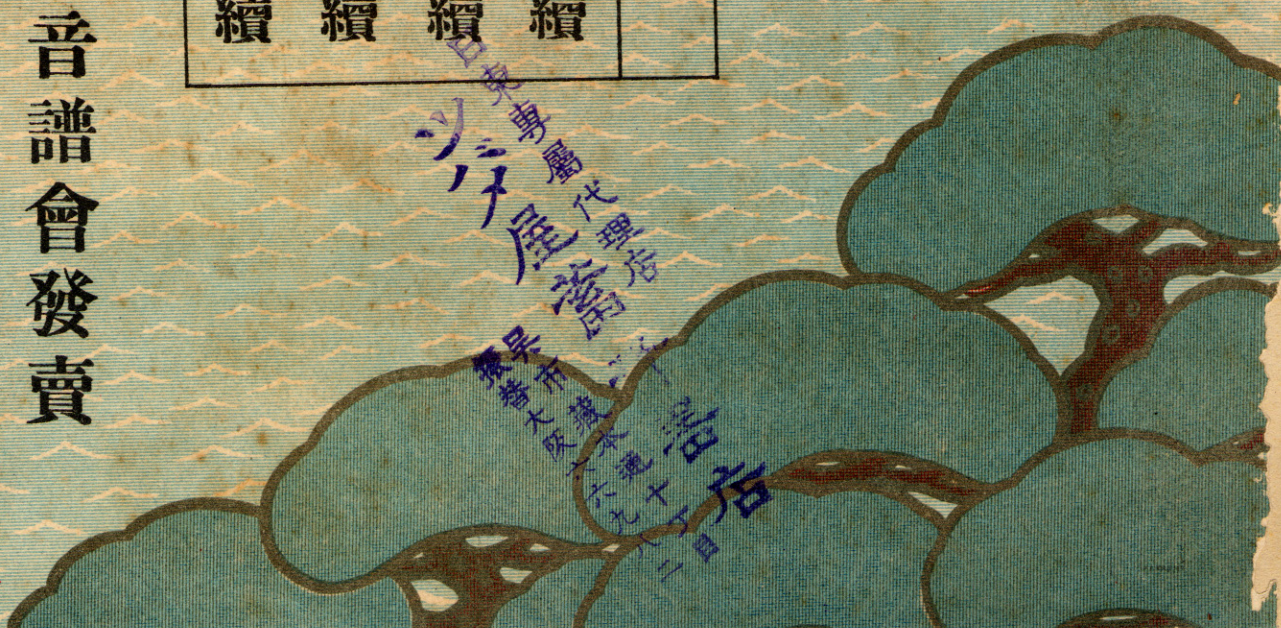 續
續
續
續
音譜會發賣
日東專屬代理店
ツバメ屋蓄
店
呉市藏本通十丁目
振替大阪六六九八二